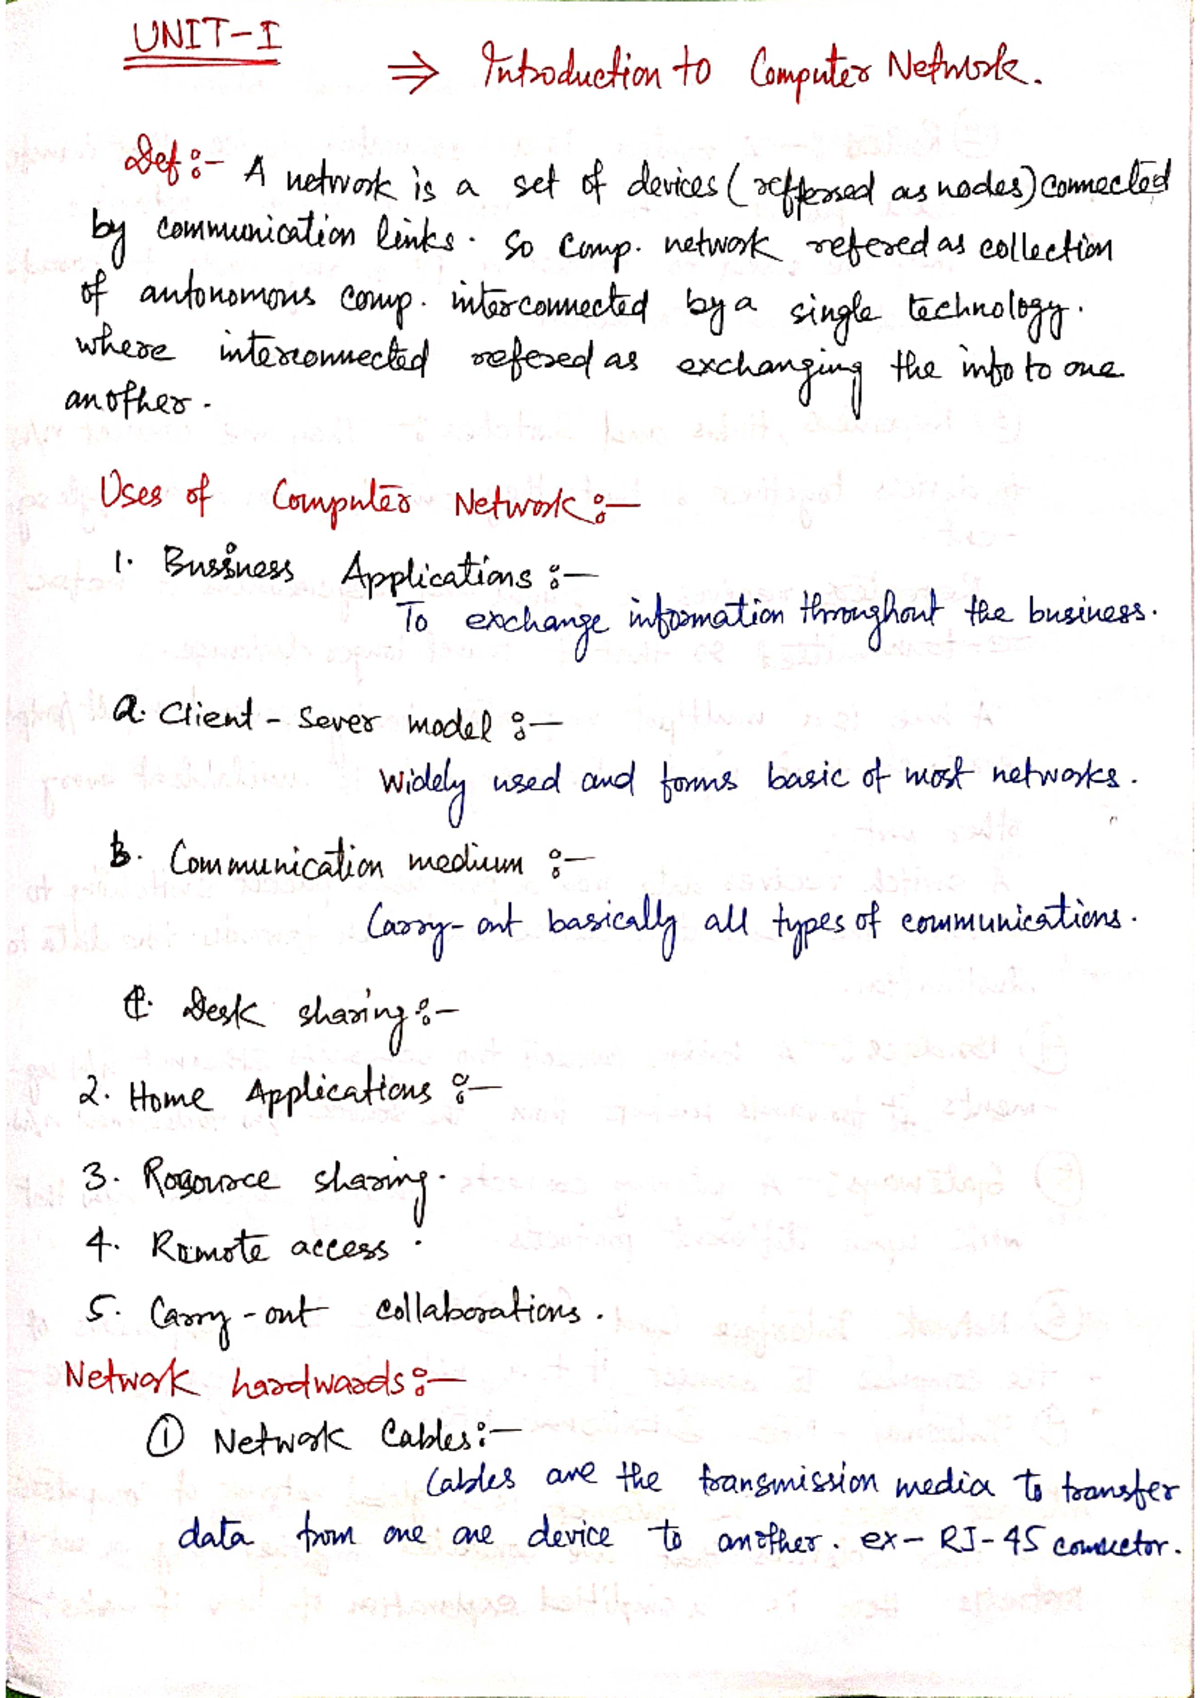 UNIT-I
⇒ Introduction to Computer Network.
Def:- A network is a set of devices (reffered as nodes) connected
by communication links. so comp. network refered as collection
of autonomous comp. interconnected by a single technology.
where interconnected refered as exchanging the info to one
another.
Uses of Computer Network:-
1. Bussiness Applications:-
To exchange information throughout the business.
a. Client - Sever model:-
Widely used and forms basic of most networks.
b. Communication medium:-
Carry-out basically all types of communications.
c. Desk sharing:-
2. Home Applications:-
3. Resource sharing.
4. Remote access.
5. Carry-out collaborations.
Network hardwards:-
① Network Cables:-
Cables are the transmission media to transfer
data from one one device to another. ex- RJ-45 connector.